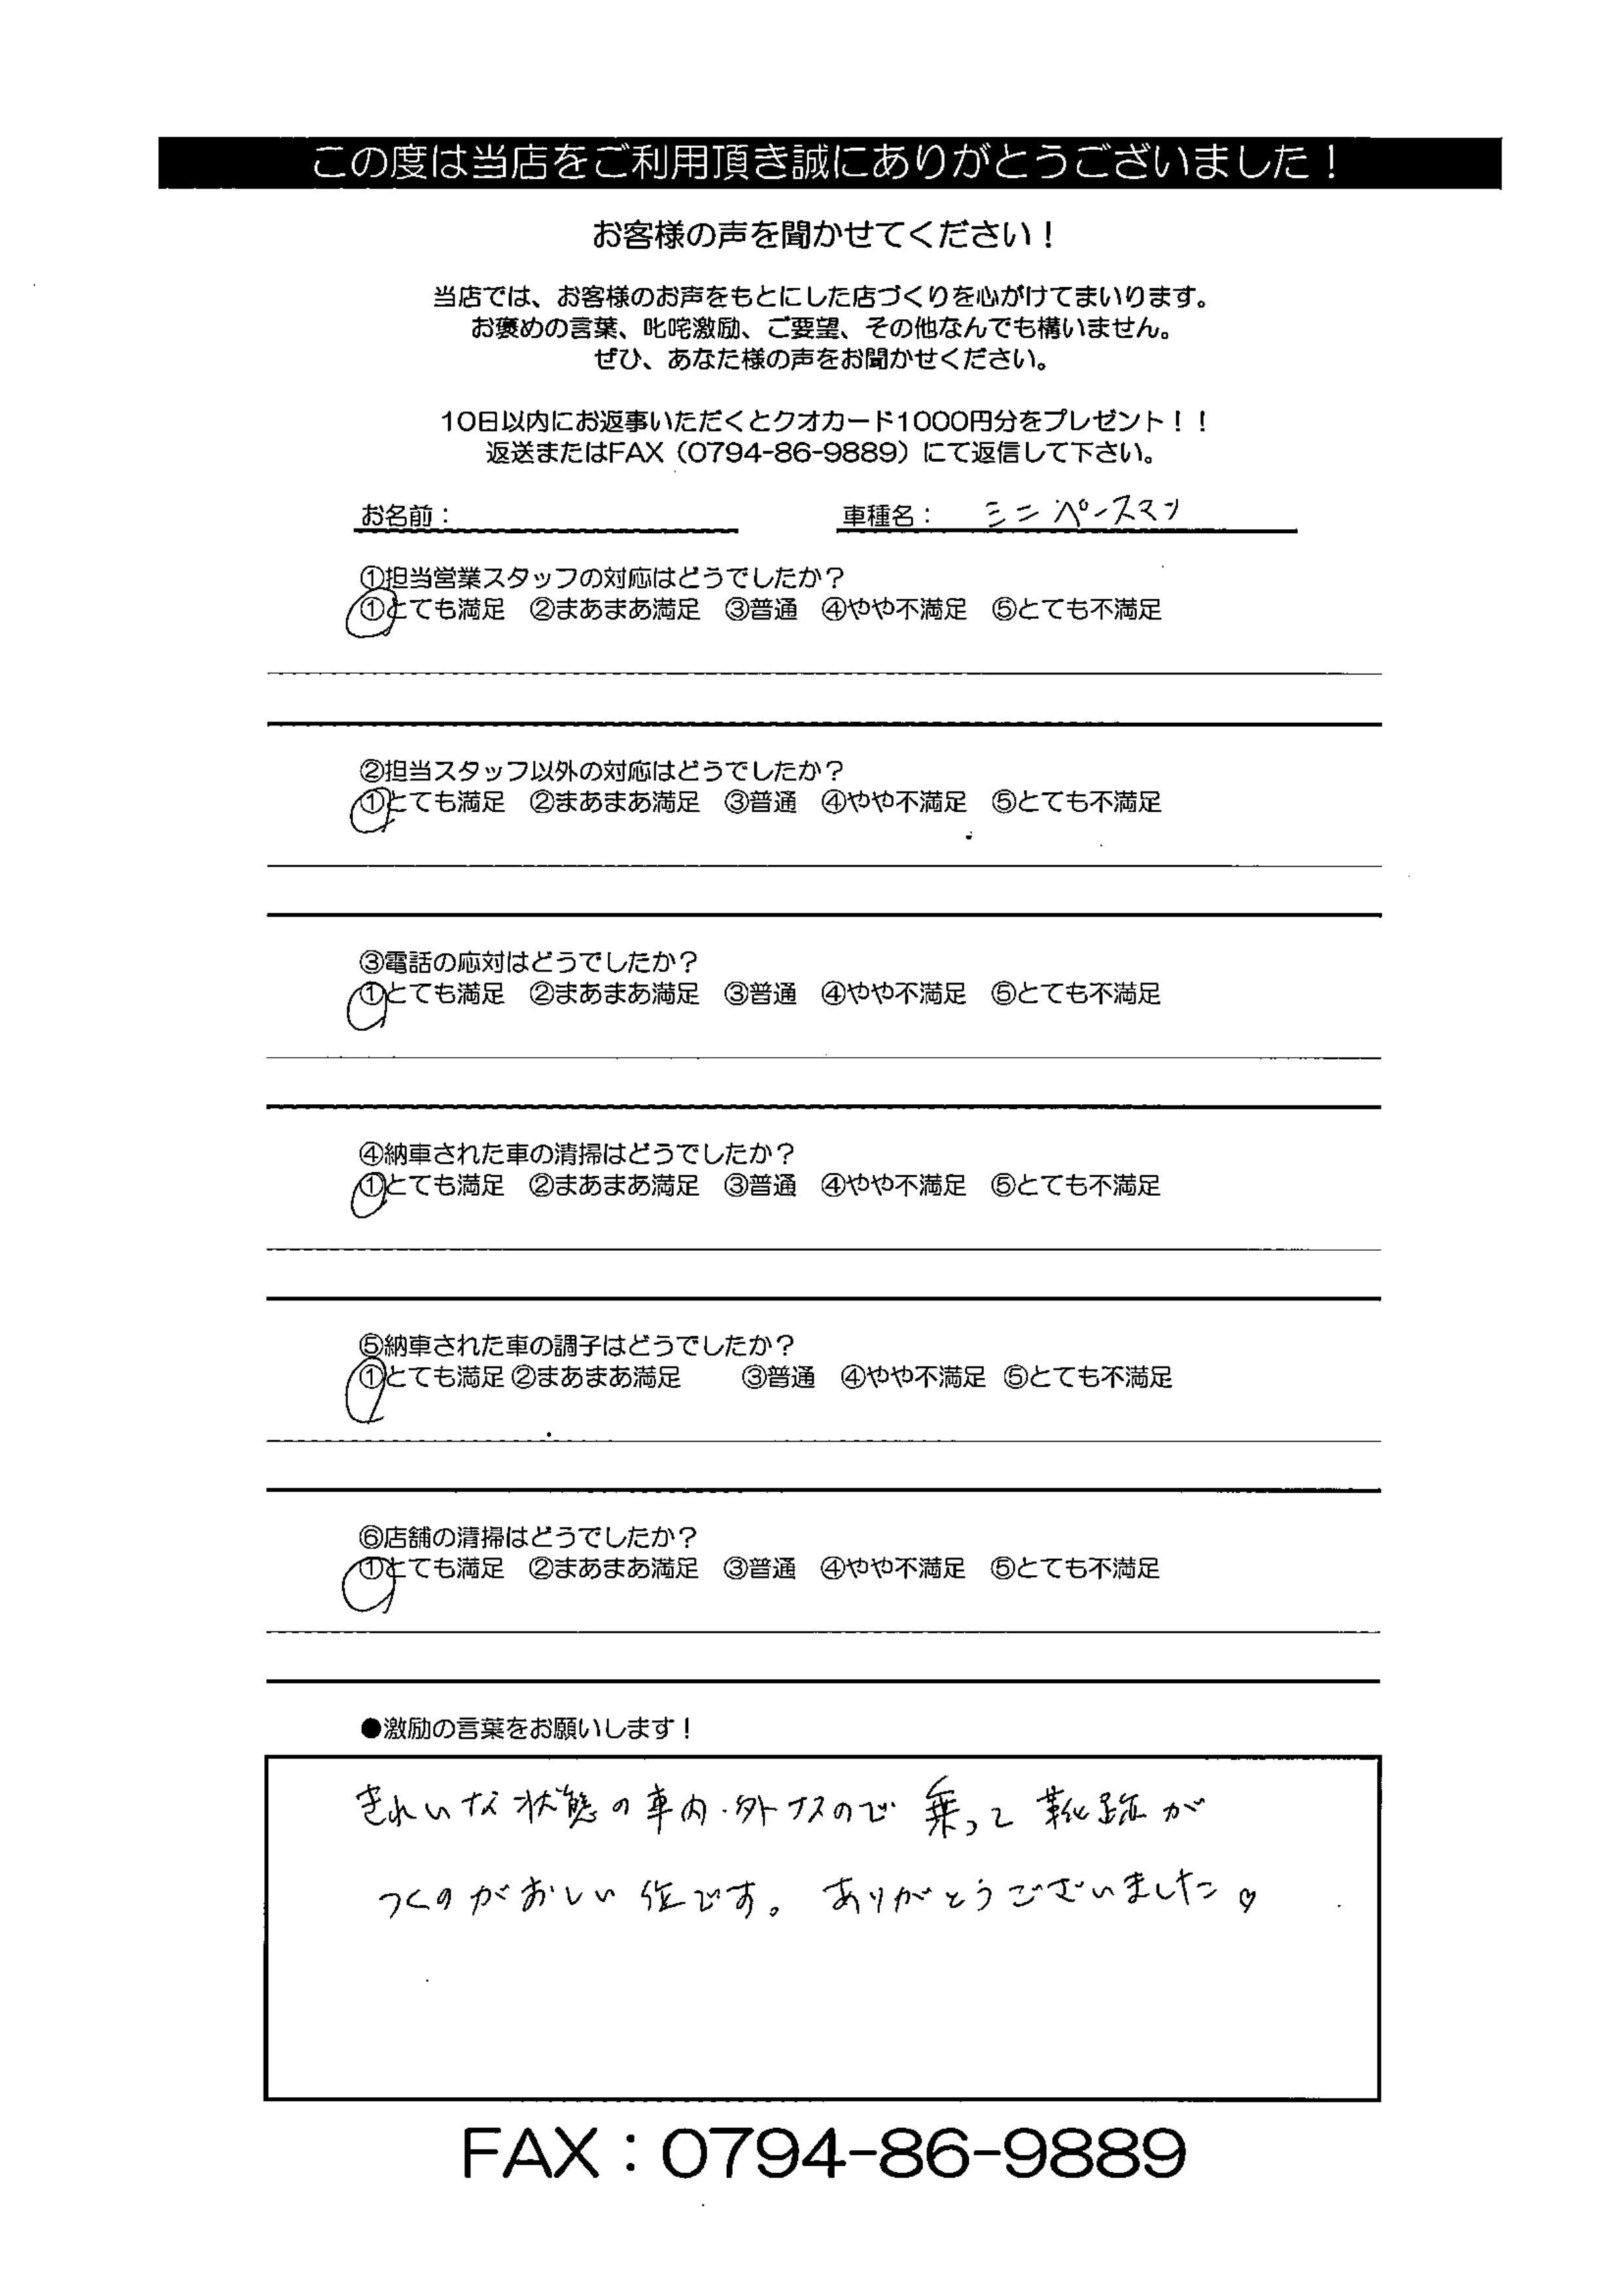 この度は当店をご利用頂き誠にありがとうございました！
お客様の声を聞かせてください！
当店では、お客様のお声をもとにした店づくりを心がけてまいります。
お褒めの言葉、叱咤激励、ご要望、その他なんでも構いません。
ぜひ、あなた様の声をお聞かせください。
10日以内にお返事いただくとクオカード1000円分をプレゼント！！
返送またはFAX（0794-86-9889）にて返信して下さい。
お名前： 車種名： ミニ ペースマン
①担当営業スタッフの対応はどうでしたか？
①とても満足 ②まあまあ満足 ③普通 ④やや不満足 ⑤とても不満足
②担当スタッフ以外の対応はどうでしたか？
①とても満足 ②まあまあ満足 ③普通 ④やや不満足 ⑤とても不満足
③電話の応対はどうでしたか？
①とても満足 ②まあまあ満足 ③普通 ④やや不満足 ⑤とても不満足
④納車された車の清掃はどうでしたか？
①とても満足 ②まあまあ満足 ③普通 ④やや不満足 ⑤とても不満足
⑤納車された車の調子はどうでしたか？
①とても満足 ②まあまあ満足 ③普通 ④やや不満足 ⑤とても不満足
⑥店舗の清掃はどうでしたか？
①とても満足 ②まあまあ満足 ③普通 ④やや不満足 ⑤とても不満足
●激励の言葉をお願いします！
きれいな状態の車内・外ナスので 乗って 靴跡が
つくのがおしい位です。ありがとうございました♡
FAX：0794-86-9889